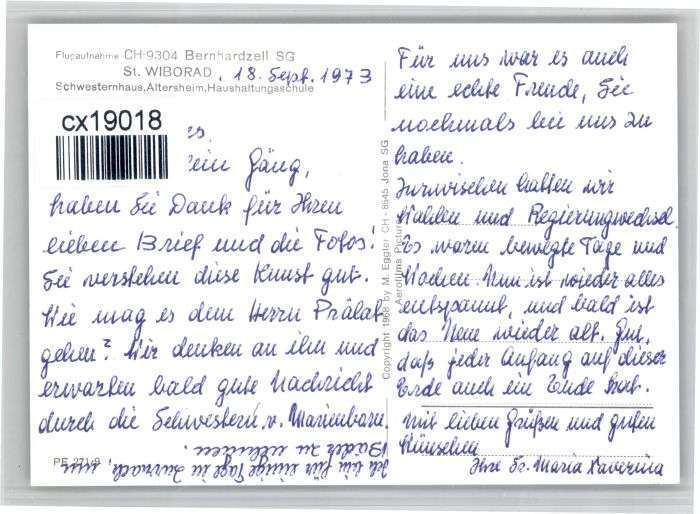 Flugaufnahme CH-9304 Bernhardzell SG
St. WIBORAD, 18. Sept. 1973
Schwesternhaus, Altersheim, Haushaltungsschule
cx19018
ein Gäng,
haben Sie Dank für Ihren
lieben Brief und die Fotos!
Sie verstehen diese Kunst gut.
Wie mag es dem Herrn Prälat
gehen? Wir denken an ihn und
erwarten bald gute Nachricht
durch die Schwestern v. Marienbann.
Ich bin für einige Tage in Zurzach, um
Bäder zu nehmen.
PE 271/9
Copyright 1968 by M. Eggler CH - 8645 Jona SG
Aerofilms Pictur
Für uns war es auch
eine echte Freude, Sie
nochmals bei uns zu
haben.
Inzwischen hatten wir
Wahlen und Regierungwechsel.
Es waren bewegte Tage und
Wochen. Nun ist wieder alles
entspannt, und bald ist
das Neue wieder alt. Gut,
daß jeder Anfang auf dieser
Erde auch ein Ende hat.
Mit lieben Grüßen und guten
Wünschen
Ihre Sr. Maria Xaverina